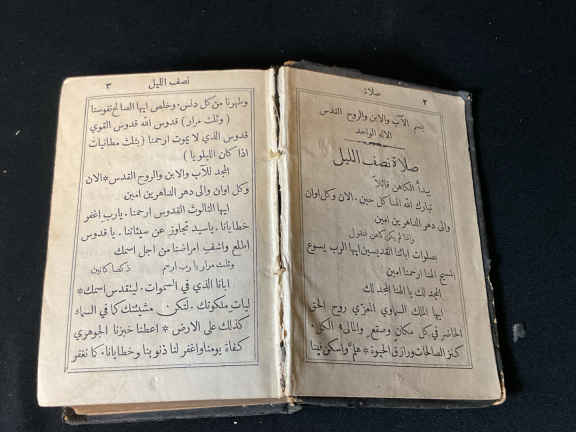 ٢
صلاة
بسم الآب والابن والروح القدس
الاله الواحد
صلاة نصف الليل
يبدأ الكاهن قائلاً
تبارك الله الهنا كل حين ٠ الان وكل اوان
والى دهر الداهرين امين
واذا لم يكن كاهن فنقول
بصلوات ابائنا القديسين ايها الرب يسوع
المسيح الهنا ارحمنا امين
المجد لك يا الهنا المجد لك
ايها الملك السماوي المعزي روح الحق
الحاضر في كل مكان وصقع ٠ والمالئ الكل ٠
كنز الصالحات ورازق الحيوة * هلم واسكن فينا
نصف الليل
٣
وطهرنا من كل دنس ٠ وخلص ايها الصالح نفوسنا
( وثلث مرار ) قدوس الله قدوس القوي
قدوس الذي لا يموت ارحمنا ( بثلث مطانيات
اذا كان الليلويا )
المجد للآب والابن والروح القدس * الان
وكل اوان والى دهر الداهرين امين
ايها الثالوث القدوس ارحمنا ٠ يارب اغفر
خطايانا ٠ ياسيد تجاوز عن سيئاتنا ٠ يا قدوس
اطلع واشف امراضنا من اجل اسمك
وثلث مرار يا رب ارحم
ابانا الذي في السموات ٠ ليتقدس اسمك *
ليات ملكوتك ٠ لتكن مشيئتك كما في السماء
كذلك على الارض * اعطنا خبزنا الجوهري
كفاة يومنا واغفر لنا ذنوبنا وخطايانا ٠ كما نغفر